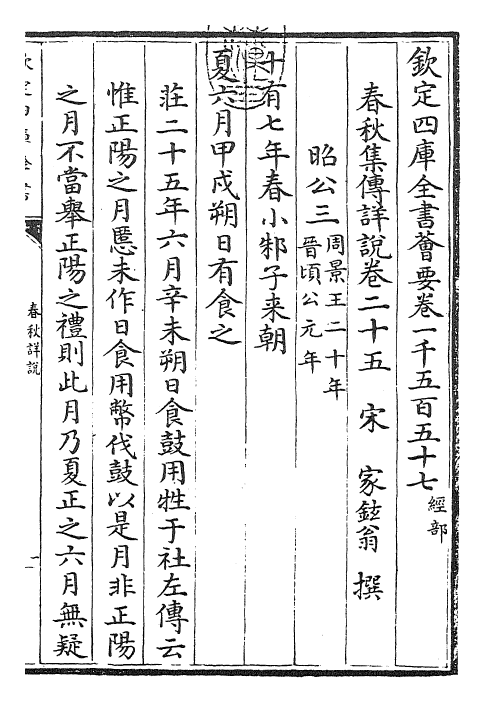 欽定四庫全書薈要卷一千五百五十七 經部
春秋集傳詳說卷二十五 宋 家鉉翁 撰
昭公三 周景王二十年
晉頃公元年
十有七年春小邾子来朝
夏六月甲戌朔日有食之
莊二十五年六月辛未朔日食鼓用牲于社左傳云
惟正陽之月慝未作日食用幣伐鼓以是月非正陽
之月不當舉正陽之禮則此月乃夏正之六月無疑
春秋詳説
一